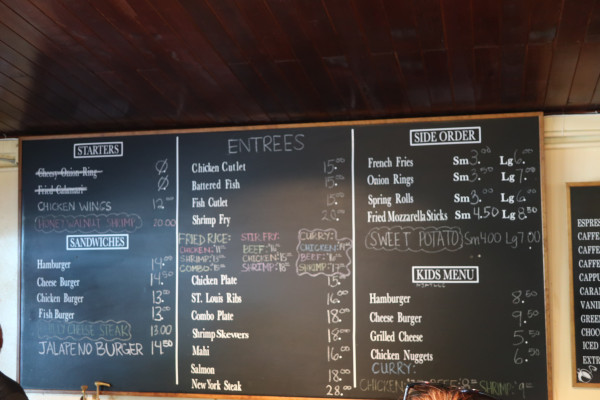 STARTERS
Cheesy Onion Ring Ø
Fried Calamari Ø
CHICKEN WINGS 12.00
HONEY WALNUT SHRIMP 20.00
SANDWICHES
Hamburger 14.00
Cheese Burger 14.50
Chicken Burger 13.00
Fish Burger 13.00
PHILLY CHEESE STEAK 13.00
JALAPENO BURGER 14.50
ENTREES
Chicken Cutlet 15.00
Battered Fish 15.00
Fish Cutlet 15.00
Shrimp Fry 20.00
FRIED RICE: STIR FRY: CURRY:
CHICKEN: BEEF: CHICKEN:
SHRIMP: CHICKEN: BEEF:
COMBO: SHRIMP: SHRIMP:
Chicken Plate 15.
St. Louis Ribs 16.00
Combo Plate 18.00
Shrimp Skewers 18.00
Mahi 16.00
Salmon 18.00
New York Steak 28.00
SIDE ORDER
French Fries Sm 3.00 Lg 6.00
Onion Rings Sm 3.50 Lg 7.00
Spring Rolls Sm 3.00 Lg 6.00
Fried Mozzarella Sticks Sm 4.50 Lg 8.50
SWEET POTATO Sm 4.00 Lg 7.00
KIDS MENU
Hamburger 8.50
Cheese Burger 9.50
Grilled Cheese 5.50
Chicken Nuggets 6.50
CURRY:
CHICKEN SHRIMP:
ESPRES
CAFFE
CAFFE
CAFFE
CAPPU
CARA
VANI
GREEN
CHOC
ICED
EXTR